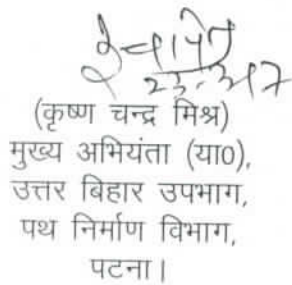 (कृष्ण चन्द्र मिश्र)
मुख्य अभियंता (या0),
उत्तर बिहार उपभाग,
पथ निर्माण विभाग,
पटना।